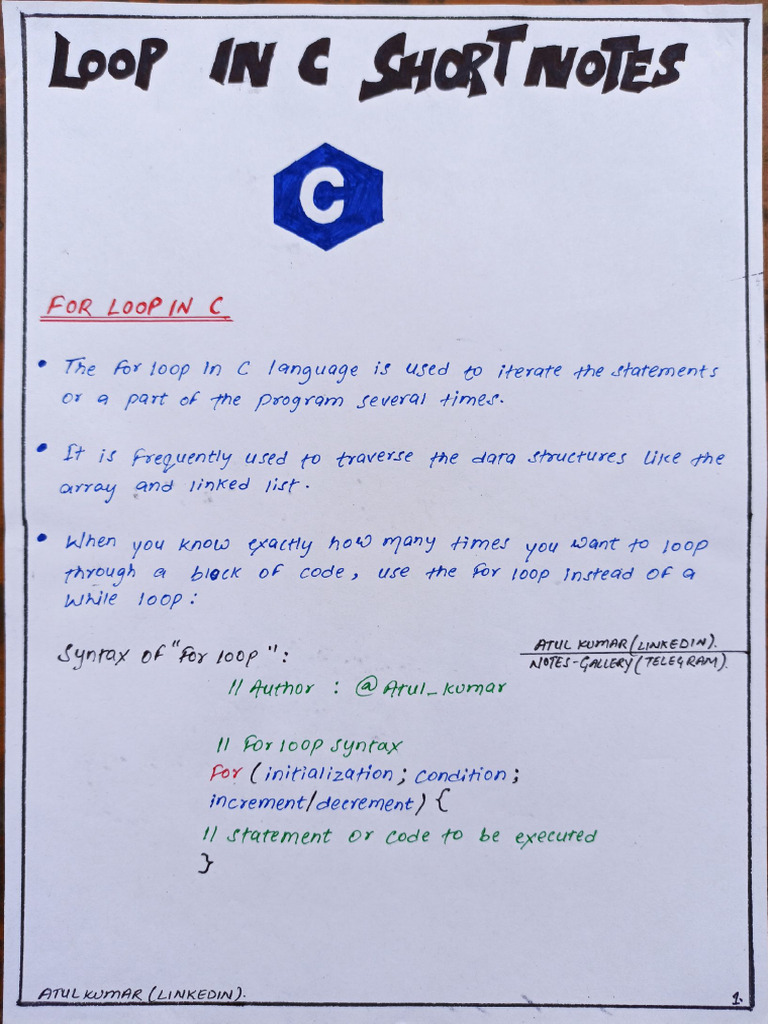 LOOP IN C SHORT NOTES
C
FOR LOOP IN C
• The for loop in C language is used to iterate the statements
or a part of the program several times.
• It is frequently used to traverse the data structures like the
array and linked list.
• When you know exactly how many times you want to loop
through a block of code, use the for loop instead of a
while loop:
Syntax of "for loop":
ATUL KUMAR (LINKEDIN).
NOTES-GALLERY (TELEGRAM).
// Author : @Atul_kumar
// for loop syntax
for (initialization; condition;
increment/decrement) {
// statement or code to be executed
}
ATUL KUMAR (LINKEDIN).
1.